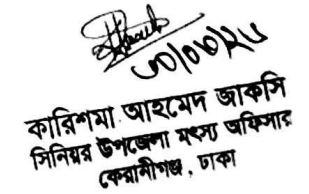 ৩০/০৬/২৫
কারিশমা আহমেদ জাকসি
সিনিয়র উপজেলা মৎস্য অফিসার
কেরানীগঞ্জ, ঢাকা